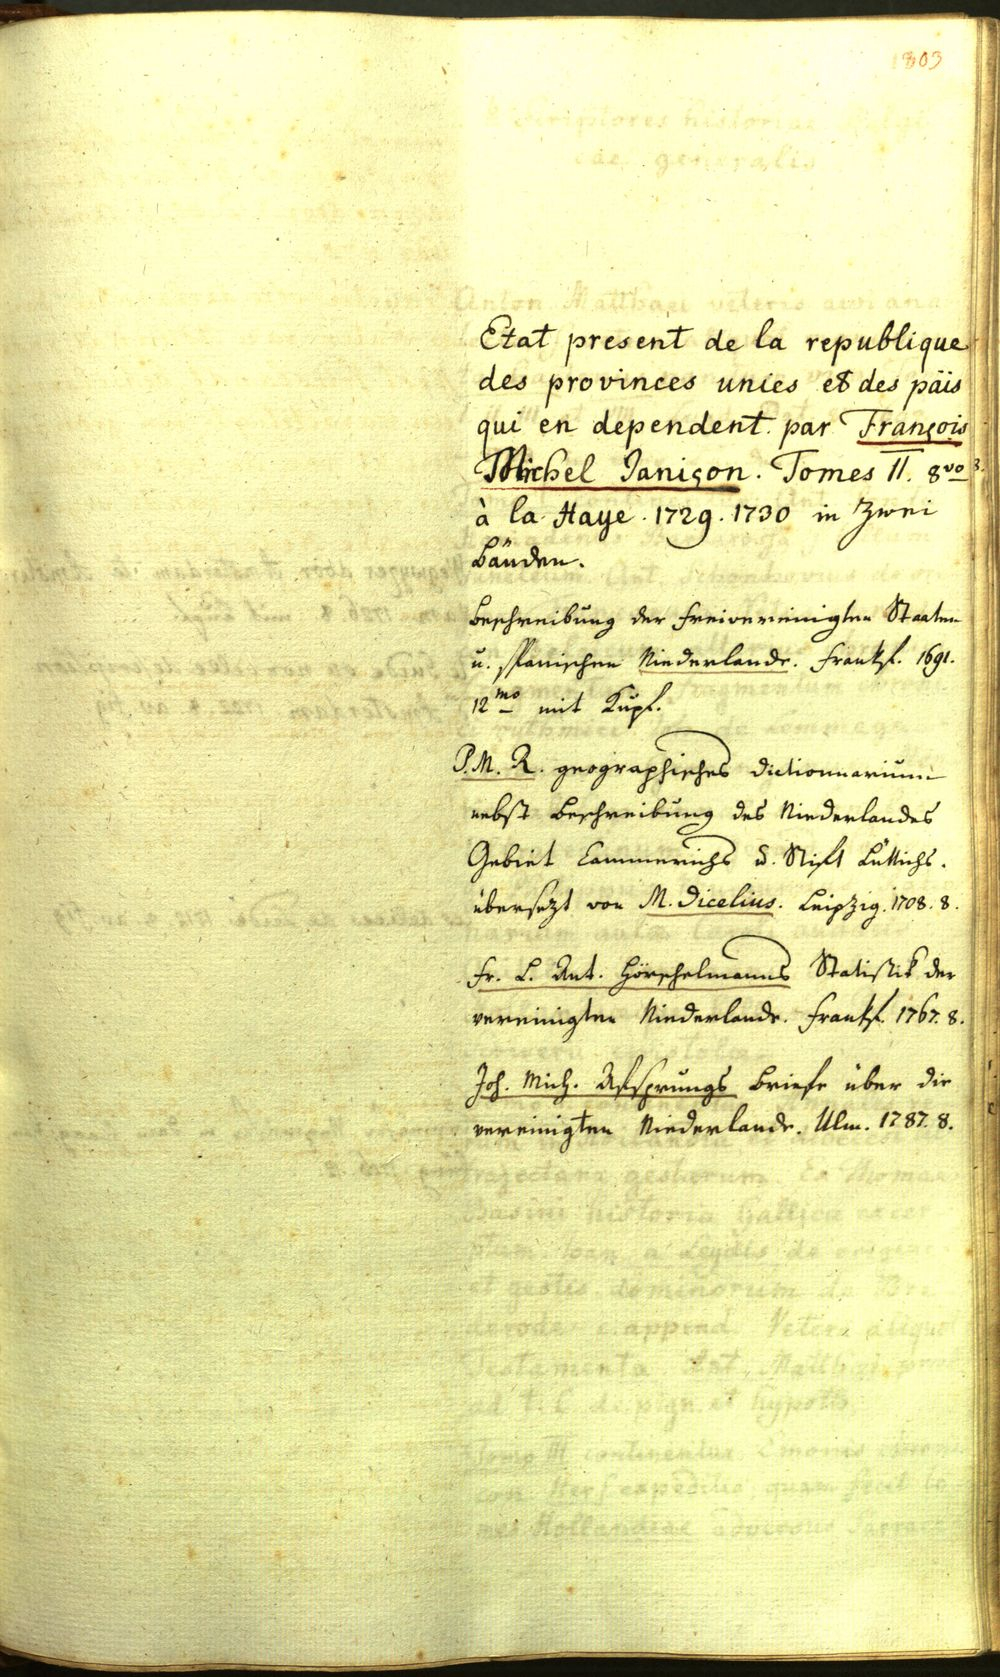 1803
Etat present de la republique
des provinces unies et des päis
qui en dependent. par François
Michel Janiçon. Tomes II. 8vo
à la Haye. 1729. 1730 in zwei
Bänden.
Beschreibung der freivereinigten Staaten
u. spanischen Niederlande. Frankf. 1691.
12mo mit Kupf.
P. M. R. geographisches dictionnarium
nebst Beschreibung des Niederlandes
Gebiet Cammerichs u. Stift Lüttichs.
übersezt von M. Dicelius. Leipzig. 1708. 8.
Fr. L. Ant. Hörschelmanns Statistik der
vereinigten Niederlande. Frankf. 1767. 8.
Joh. Mich. Afsprungs Briefe über die
vereinigten Niederlande. Ulm. 1787. 8.